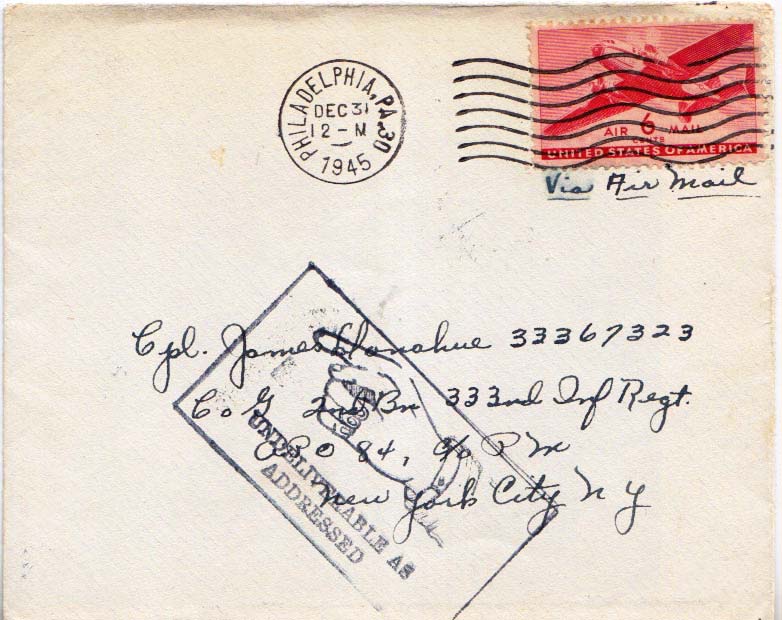 PHILADELPHIA, PA. 30
DEC 31
12 - M
1945
AIR 6 MAIL
CENTS
UNITED STATES OF AMERICA
Via Air Mail
Cpl. James Donahue 33367323
Co G 2nd Bn 333nd Inf Regt.
APO 84, c/o P M
New York City N Y
UNDELIVERABLE AS
ADDRESSED